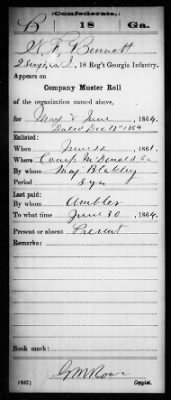 (Confederate.)
B 18 Ga.
W. F. Bennett
2 Sergt, Co. , 18 Reg't Georgia Infantry.
Appears on
Company Muster Roll
of the organization named above,
for May & June, 1864.
Dated Dec 1864
Enlisted:
When June 12, 1861.
Where Camp McDonald Ga
By whom Maj
Period 3 yrs
Last paid:
By whom Ambler
To what time June 30, 1864.
Present or absent Present
Remarks:
Book mark:
(642)
Copyist.